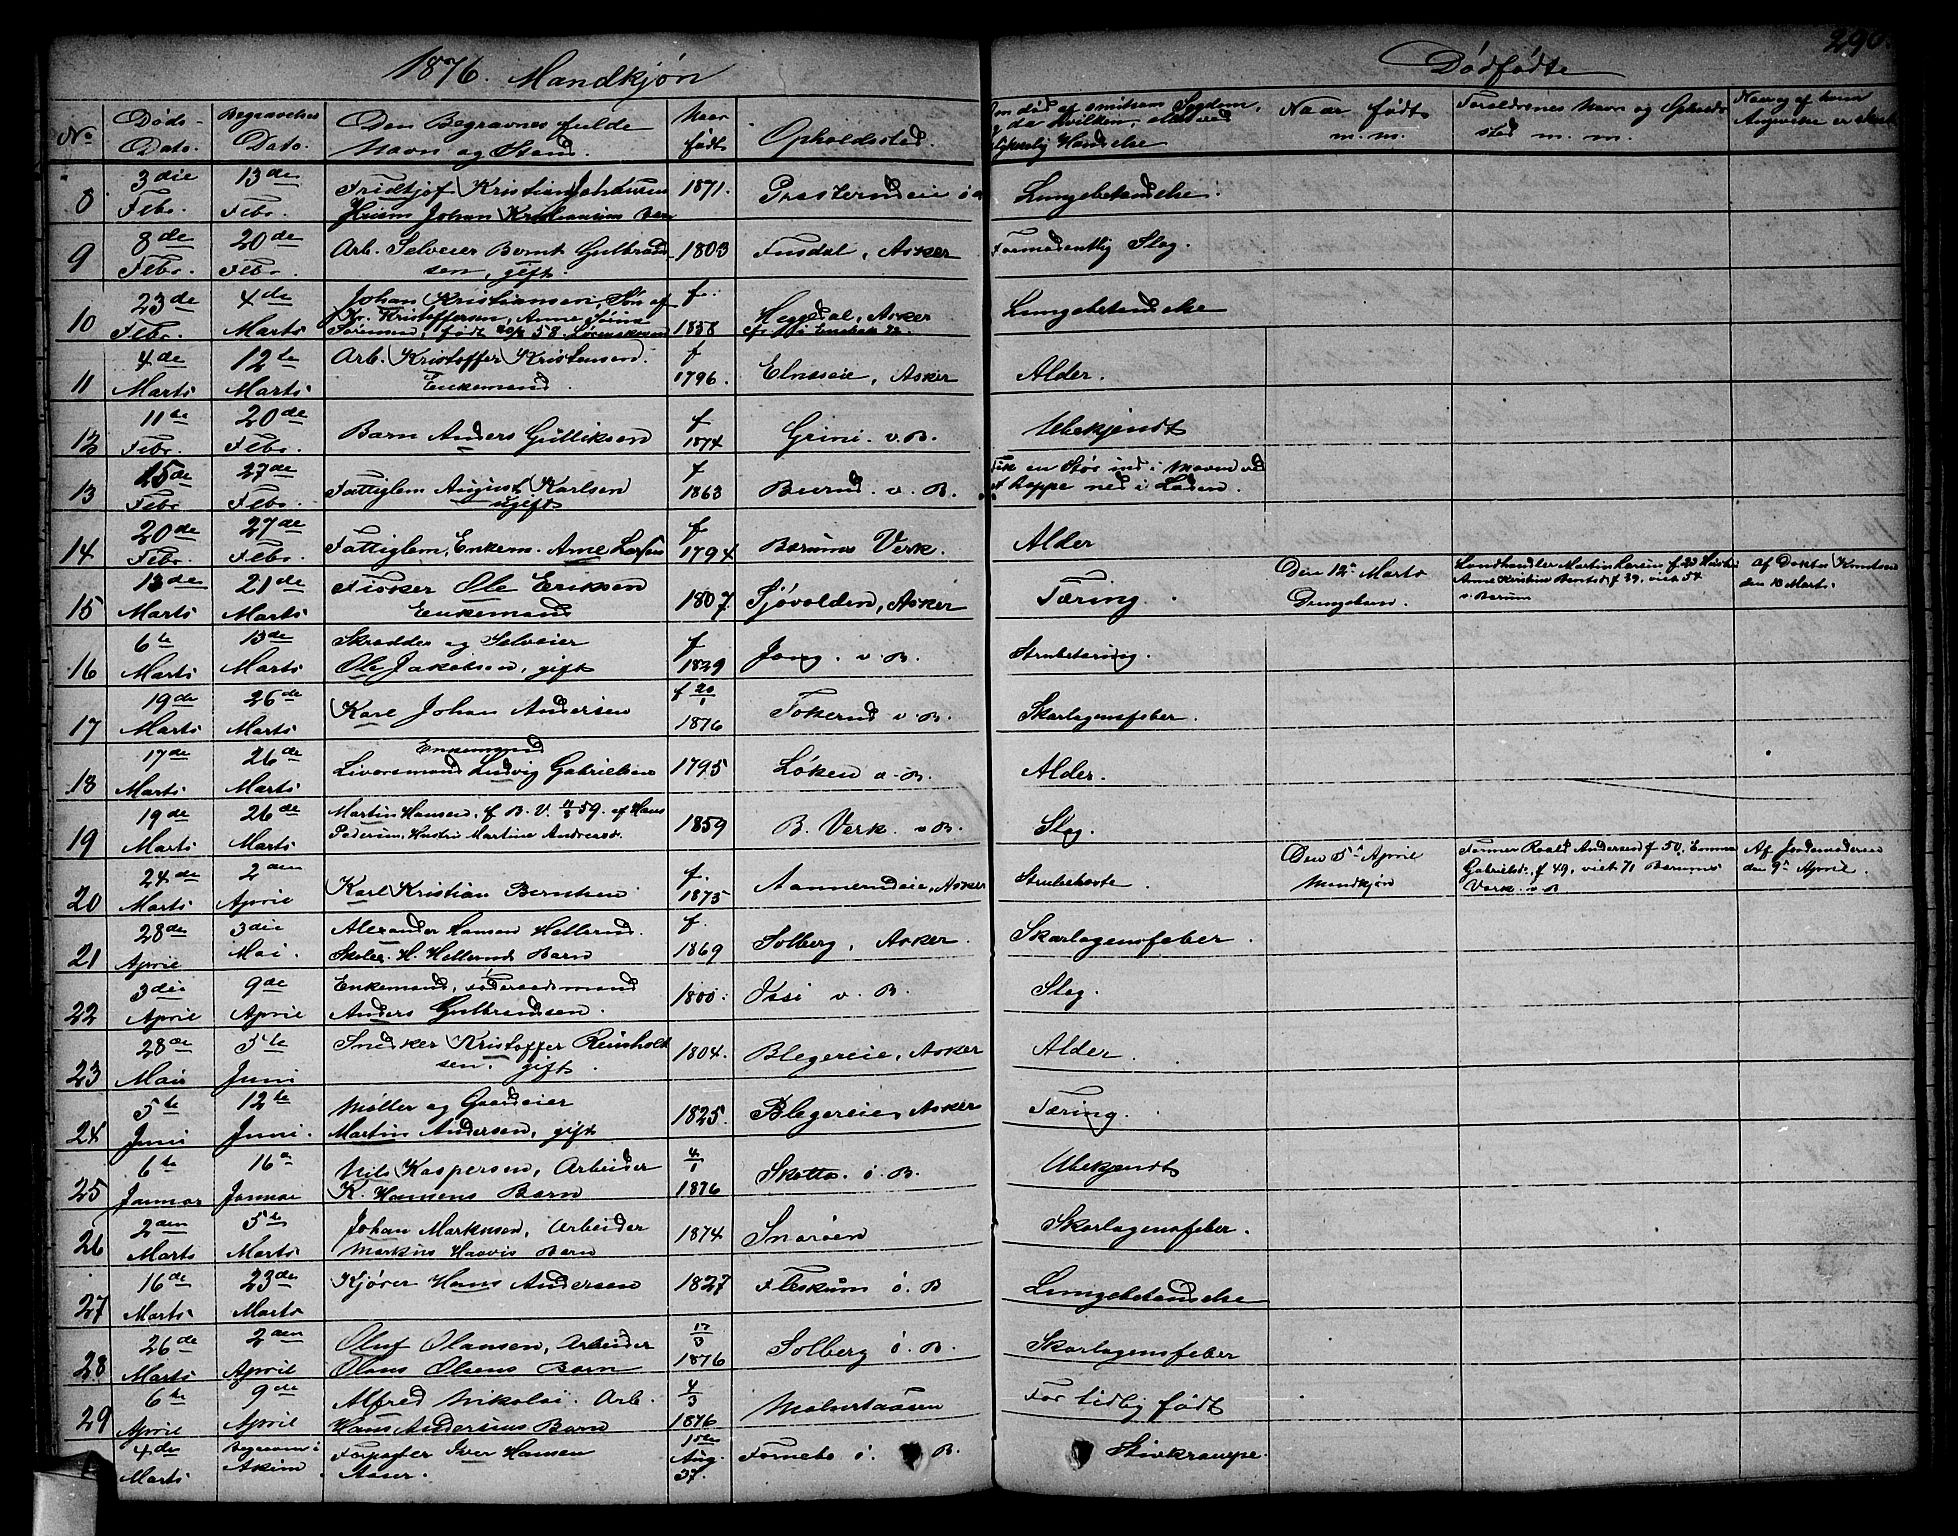 1876. Mandkjøn
Dødfødte
290.
No
Døds-
Dato.
Begravelses
Dato.
Den Begravnes fulde
Navn og Stand.
Naar
født
Opholdssted.
Om død af smitsom Sygdom,
og da hvilken, eller ved
ulykkelig Hændelse
Naar født
m. m.
Forældrenes Navn og Opholds-
sted m. m.
Naar og af hvem
Angivelse er skeet
8
3die
Febr.
13de
Febr.
Fridtjof Kristian Johansen
Johan Kristiansens Barn
1871.
Lungebetændelse.
9
8de
Febr.
20de
Febr.
Arb. Selveier Bernt Gulbrand
sen, gift
1803
Fusdal, Asker
Formodentlig Slag.
10
23de
Febr.
4de
Marts
Johan Kristiansen, Søn af
Kr. Kristoffersen, Anne
født 58.
f.
1858
Heggedal, Asker
Lungebetændelse
11
4de
Marts
12te
Marts
Arb. Kristoffer Kristensen.
Enkemand.
f
1796.
Elneseie, Asker
Alder.
12
11te
Febr.
20de
Febr.
Barn Anders Gulliksen
f
1874
Grini. v. B.
Ubekjendt
13
15de
Febr.
27de
Febr.
Fattiglem August Karlsen
ugift
f
1863
Burud. v. B.
Fik en Stør ind i Maven ved
at hoppe ned i Laden.
14
20de
Febr.
27de
Febr.
Fattiglem, Enkem. Arne Larsen
f
1794
Bærums Verk.
Alder
15
13de
Marts
21de
Marts
Fisker Ole Eriksen
Enkemand
1807.
Sjøvolden, Asker
Tæring.
Den 12te Marts
Drengebarn.
Landhandler Martin Larsen f. 23
Anne Kristine f 29, viet 54
v. Bærum
Af Doktor Knutsen
den 13 Marts.
16
6te
Marts
13de
Marts
Skrædder og Selveier
Ole Jakobsen, gift
f
1829
Jong. v. B.
Strubetæring.
17
19de
Marts
26de
Marts
Karl Johan Andersen
f 20/1
1876
Tokerud v. B.
Skarlagensfeber.
18
17de
Marts
26de
Marts
Enkemand
Livørsmand Ludvig Gabrielsen
1795
Løken v. B.
Alder.
19
19de
Marts
26de
Marts
Martin Hansen, f B. V. 59. af Hans
Pedersen, Hustru Martine Andersd.
1859
B. Verk. v. B.
Slag.
20
24de
Marts
2den
April
Karl Kristian Berntsen
f.
1875
Aannerudeie, Asker
Strubehoste.
Den 5te April
Mandkjøn
Former Roald Andersen f 50, Emma
Gabrielsd. f 49, viet 71 Bærums
Verk. v. B
Af Jordemoderen
den 9de April.
21
28de
April
3die
Mai.
Alexander Hansen Hellerud.
Skoler. H. Helleruds Barn
f.
1869
Solberg, Asker.
Skarlagensfeber.
22
3die
April
9de
April
Enkemand, Føderaadsmand
Anders Gulbrandsen.
1800.
Issi v. B.
Slag.
23
28de
Mai
5te
Juni
Snedker Kristoffer Reinholt
sen. gift.
1804.
Blegereie, Asker
Alder.
24
5te
Juni
12te
Juni.
Møller og Gaardeier
Martin Andersen, gift
1825.
Blegereie, Asker
Tæring.
25
6te
Januar
16de
Januar
Nils Kaspersen, Arbeider
K. Hansens Barn
4/1
1876
Skotta. ø. B.
Ubekjendt
26
2den
Marts
5te
Marts
Johan Markusen, Arbeider
Markus Barn
1874
Snarøen
Skarlagensfeber.
27
16de
Marts
23de
Marts
Kjører Hans Andersen
1827
Fleskum ø. B
Lungebetændelse
28
26de
Marts
2den
April
Oluf Olausen, Arbeider
Olaus Olsens Barn
17/3
1876
Solberg ø. B.
Skarlagensfeber
29
6te
April
9de
April
Alfred Nikolai. Arb.
Hans Andersens Barn
4/3
1876
For tidlig født
4de
Marts
Begraven i
Askim
Forpagter Iver Hansen
15de
Aug.
37.
Fornebo ø. B.
Stivkrampe.